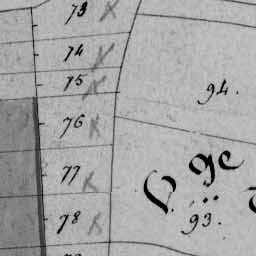 73
74
75
94.
76
77
78
93.